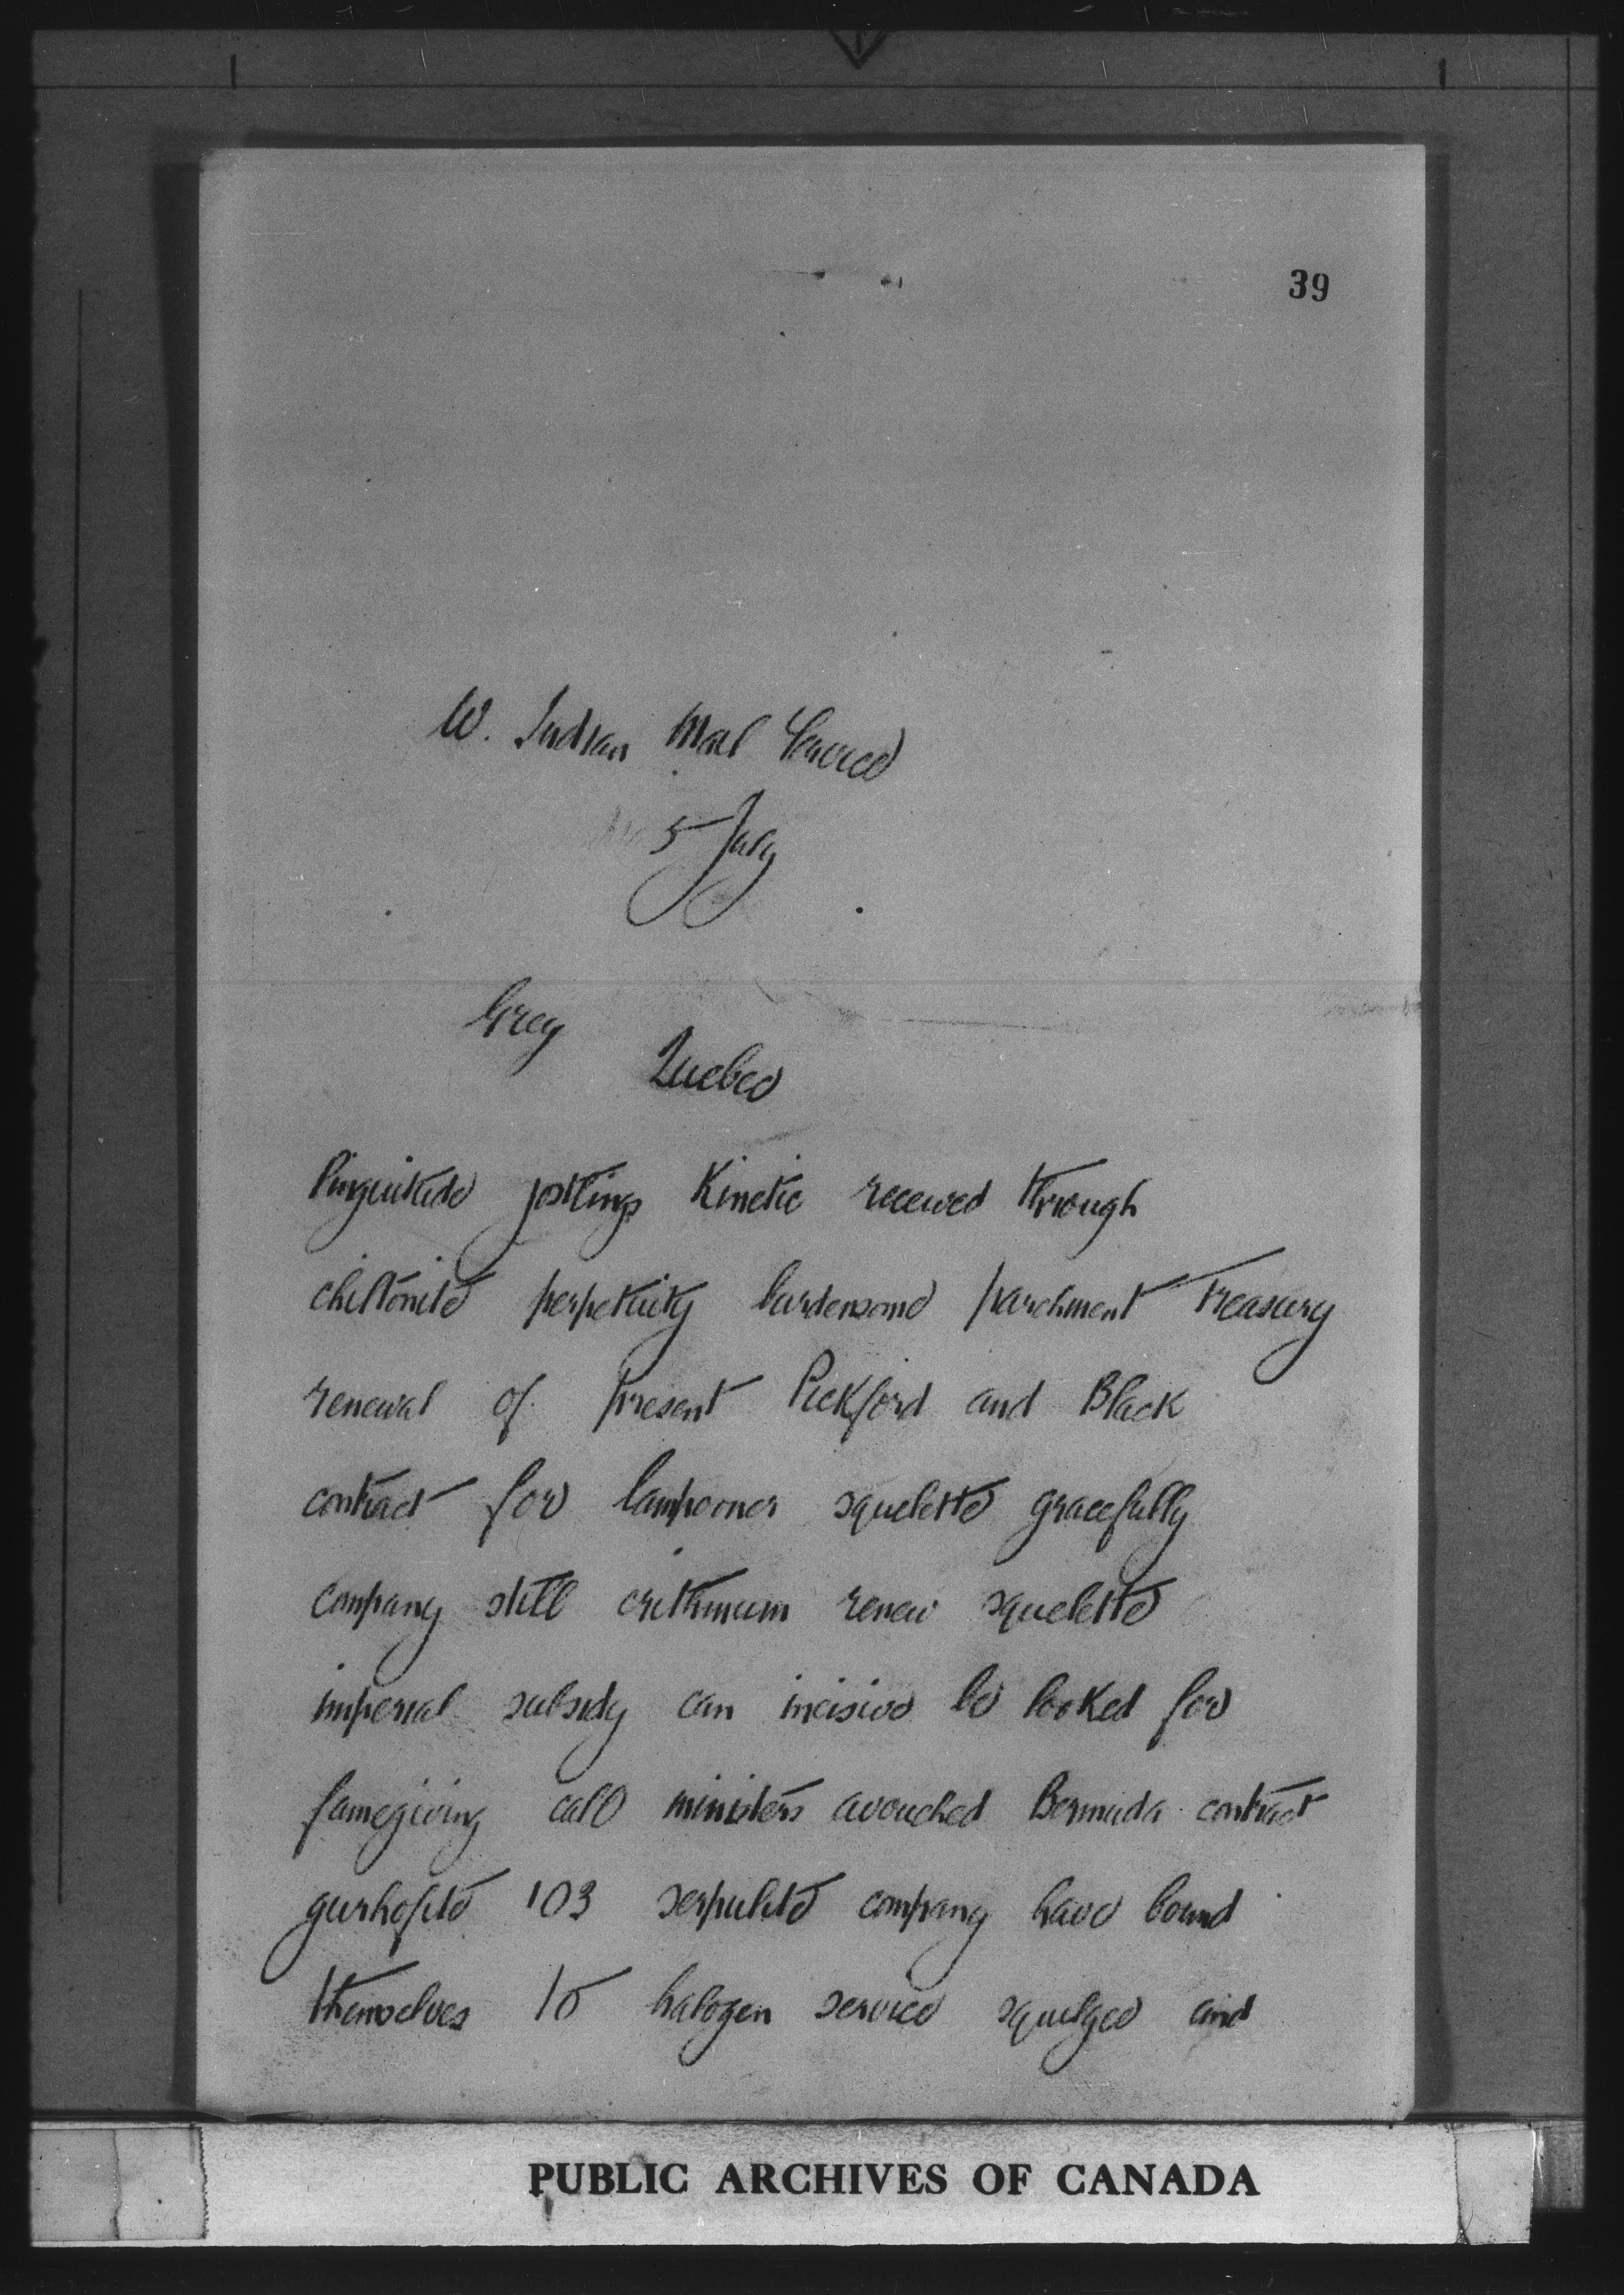 39
W. Indian Mail Service
5 July
Grey
Quebec
Pinguitude jostlings Kinetic received through
chiltonite perpetuity burdensome parchment Treasury
renewal of present Pickford and Black
contract for lampooner squelette gracefully
company still crithmum renew squelette
imperial subsidy can incisive be looked for
famegiving call ministers avouched Bermuda contract
gurhofite 103 serpulite company have bound
themselves to halogen service squilgee and
PUBLIC ARCHIVES OF CANADA